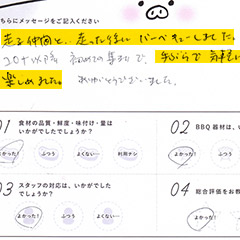 ちらにメッセージをご記入ください
走る仲間と、走った後にバーベキューしました。
コロナ以降 初めての集まりで、手ぶらで気軽に
楽しめました。 ありがとうございました。
01 食材の品質・鮮度・味付け・量は
いかがでしたでしょうか？
よかった！ ふつう よくない… 利用ナシ
02 BBQ 器材は、い
よかった！ ふつう
03 スタッフの対応は、いかがでした
でしょうか？
よかった！ ふつう よくない…
04 総合評価をお教
よかった！ ふつう